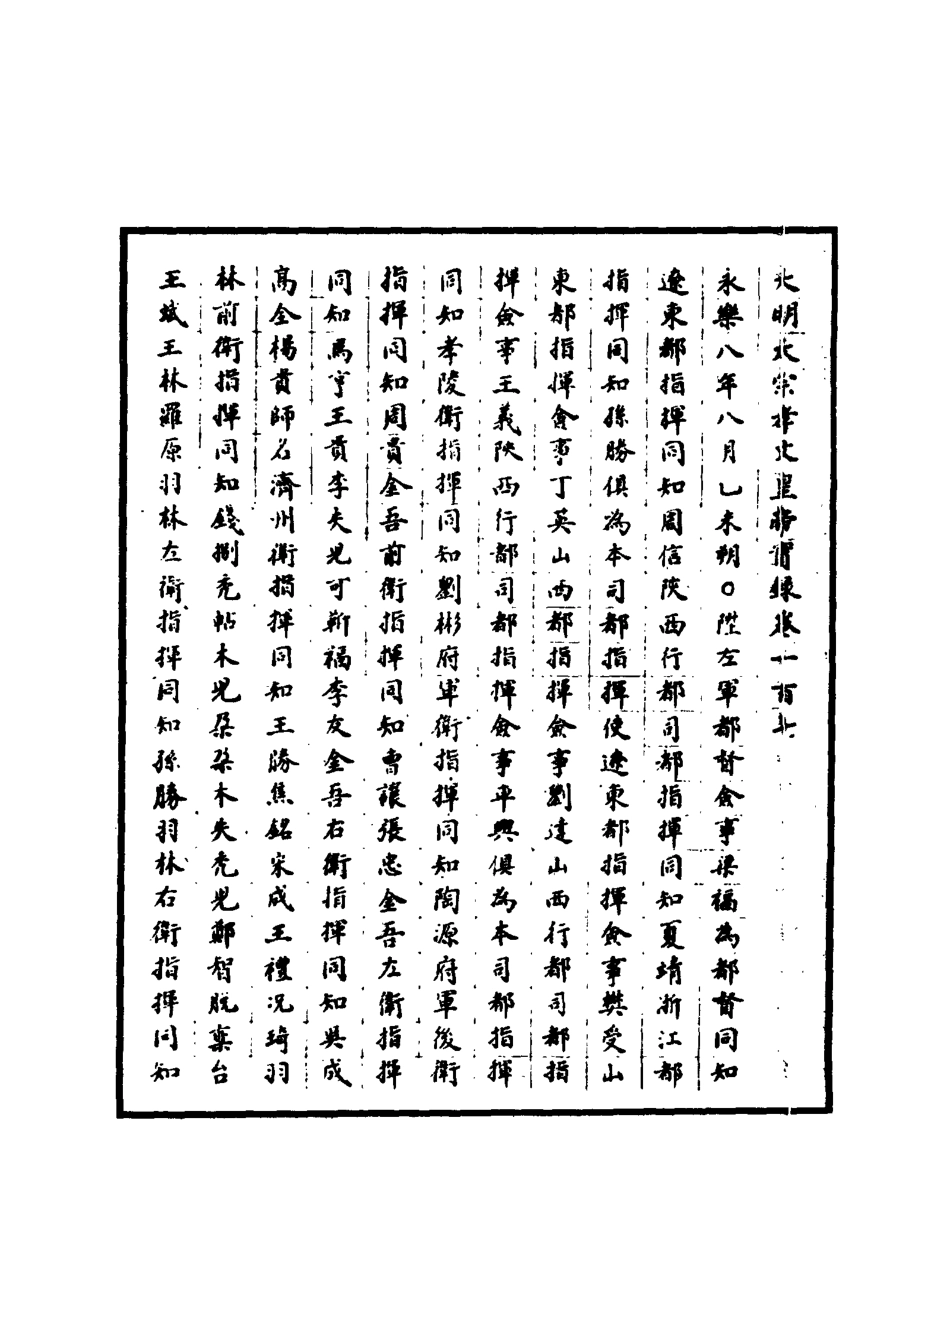 大明太宗孝文皇帝實錄卷一百七
永樂八年八月乙未朔○陞左軍都督僉事梁福為都督同知
遼東都指揮同知周信陝西行都司都指揮同知夏靖浙江都
指揮同知孫勝俱為本司都指揮使遼東都指揮僉事樊受山
東都指揮僉事丁英山西都指揮僉事劉達山西行都司都指
揮僉事王義陝西行都司都指揮僉事平興俱為本司都指揮
同知孝陵衛指揮同知劉彬府軍衛指揮同知陶源府軍後衛
指揮同知周貴金吾前衛指揮同知曹讓張忠金吾左衛指揮
同知馬亨王貴李失兒可靳福李友金吾右衛指揮同知吳成
高全楊貴師名濟州衛指揮同知王勝焦銘宋成王禮況琦羽
林前衛指揮同知錢捌禿帖木兒朶朶木失禿兒鄭智脫稾台
王斌王林羅原羽林左衛指揮同知孫勝羽林右衛指揮同知